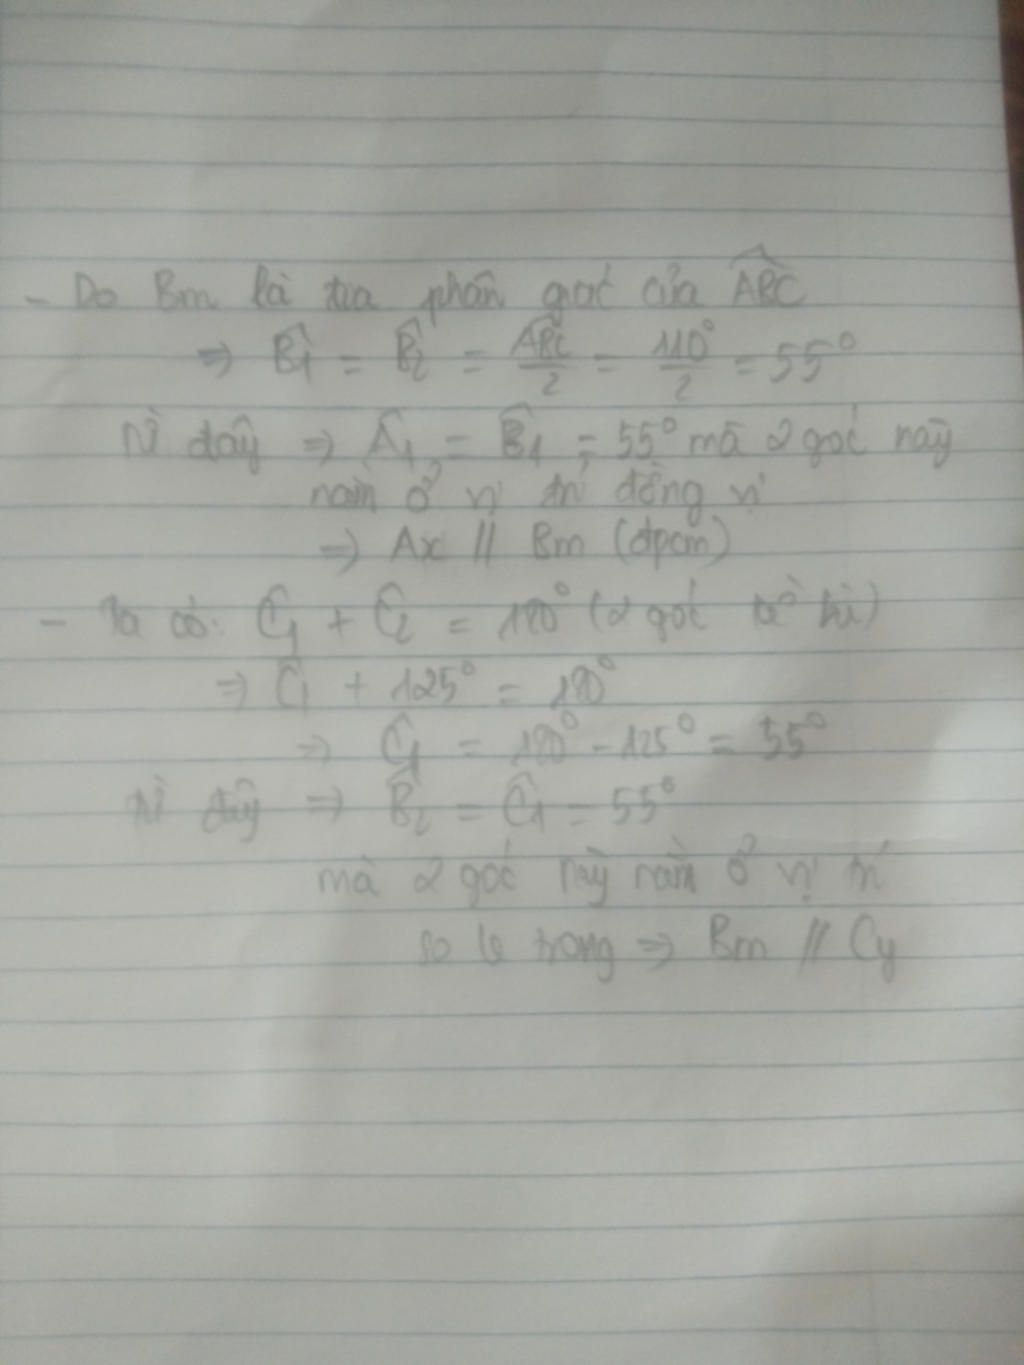 - Do Bm là tia phân giác của \widehat{ABC}
=> \widehat{B_1} = \widehat{B_2} = \frac{\widehat{ABC}}{2} = \frac{110°}{2} = 55°
Từ đây => \widehat{A_1} = \widehat{B_1} = 55° mà 2 góc này
nằm ở vị trí đồng vị
=> Ax // Bm (đpcm)
- Ta có: \widehat{C_1} + \widehat{C_2} = 180° (2 góc kề bù)
=> \widehat{C_1} + 125° = 180°
=> \widehat{C_1} = 180° - 125° = 55°
Từ đây => \widehat{B_2} = \widehat{C_1} = 55°
mà 2 góc này nằm ở vị trí
so le trong => Bm // Cy